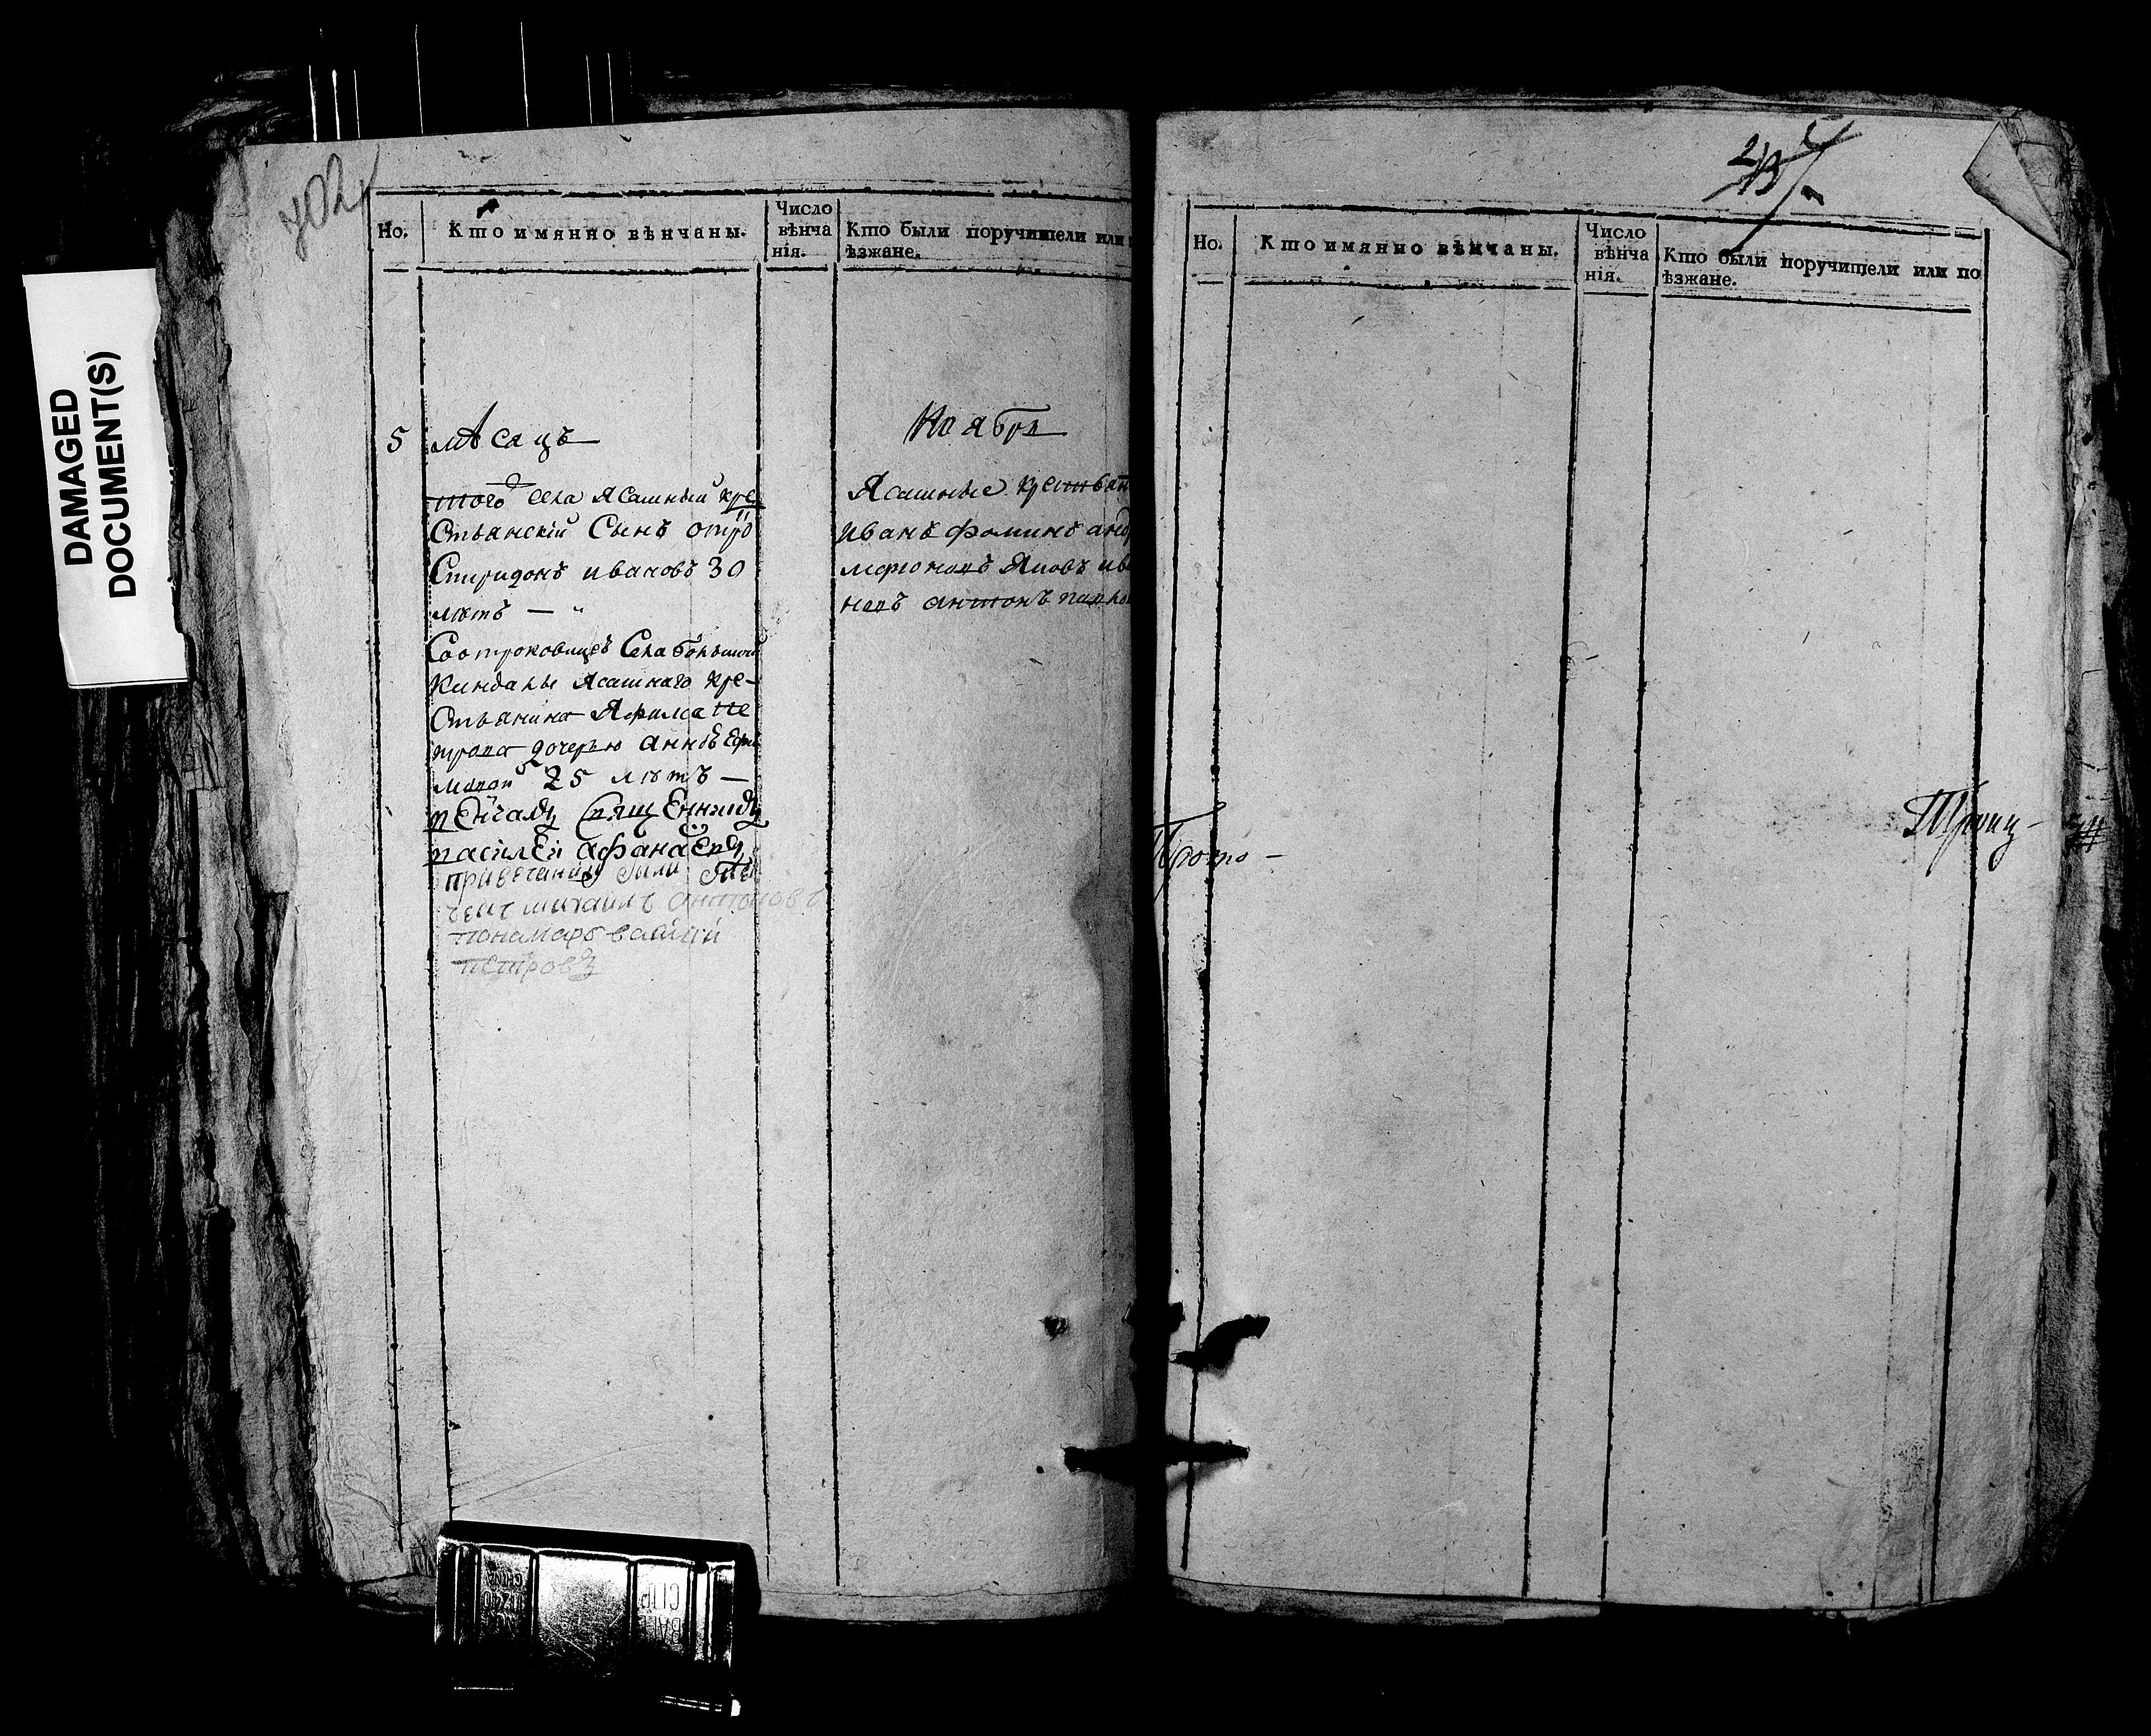 DAMAGED
DOCUMENT(S)
402
Но.
Кто имянно вѣнчаны.
Число
вѣнча
нія.
Кто были поручители или
ѣзжане.
5
мѣсяцъ
Ноября
того села Ясашный кре
стьянскій Сынъ отро
Спиридонъ ивановъ 30
лѣтъ —
Соотроковицею Села большой
Киндалы Ясашнаго кре-
стьянина Яфима Пе
трова дочерью анною Ефи
мовой 25 лѣтъ —
венчалъ Священникъ
василей афанасевъ
привечании были
михаилъ антоновъ
понамарь василий
петровъ
Ясашные крестьян
иванъ фоминъ анд
Яковъ ива
новъ антонъ
Но.
Кто имянно вѣнчаны.
Число
вѣнча
нія.
Кто были поручители или по
ѣзжане.
Прото-